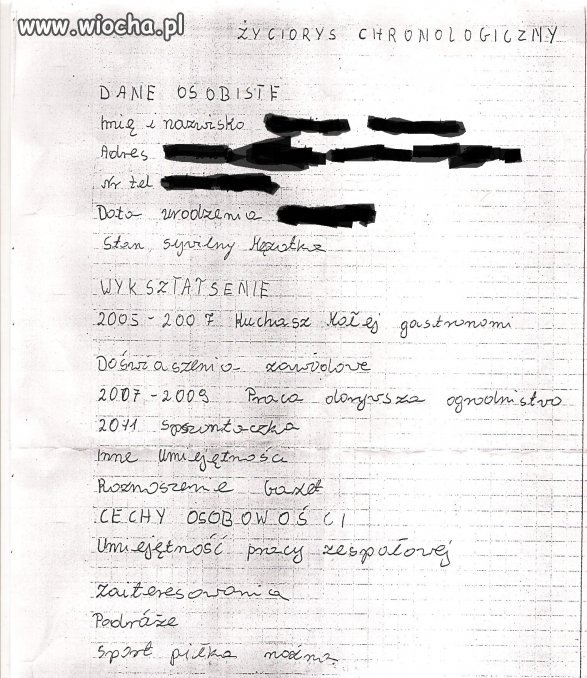 www.wiocha.pl
ŻYCIORYS CHRONOLOGICZNY
DANE OSOBISTE
Imię i nazwisko
Adres
Nr tel
Data urodzenia
Stan sywilny Mężatka
WYKSZTATSENIE
2005-2007 Kuchasz Małej gastronomi
Doświaszenia zawodowe
2007-2009 Praca dorywsza ogrodnistwo
2011 spszontaczka
Inne Umiejętnośći
Roznoszenie Gazet
CECHY OSOBOWOŚCI
Umiejętność pracy zespołowej
Zaiteresowania
Podróże
Sport piłka nożna